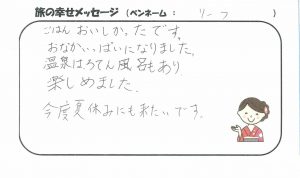 旅の幸せメッセージ (ペンネーム : リーフ )
ごはんおいしかったです。
おなかいっぱいになりました。
温泉はろてん風呂もあり
楽しめました.
今度夏休みにも来たいです.